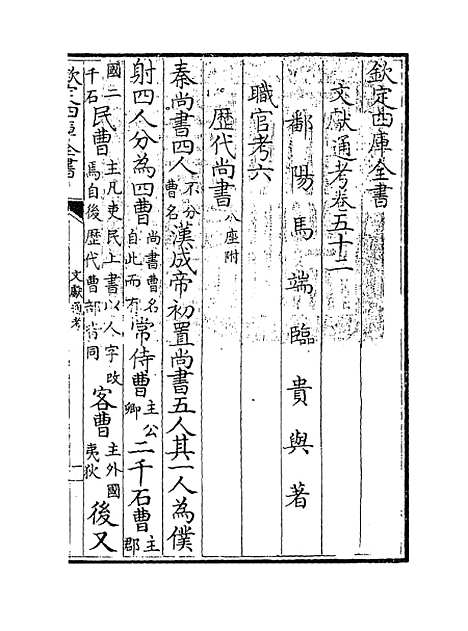 欽定四庫全書
文獻通考卷五十二
鄱陽馬端臨貴與著
職官考六
歷代尚書八座附
秦尚書四人不分曹名漢成帝初置尚書五人其一人為僕
射四人分為四曹尚書曹名自此而有常侍曹主公卿二千石曹主郡
國二千石民曹主凡吏民上書以人字改焉自後歷代曹部皆同客曹主外國夷狄後又
欽定四庫全書
文獻通考
一